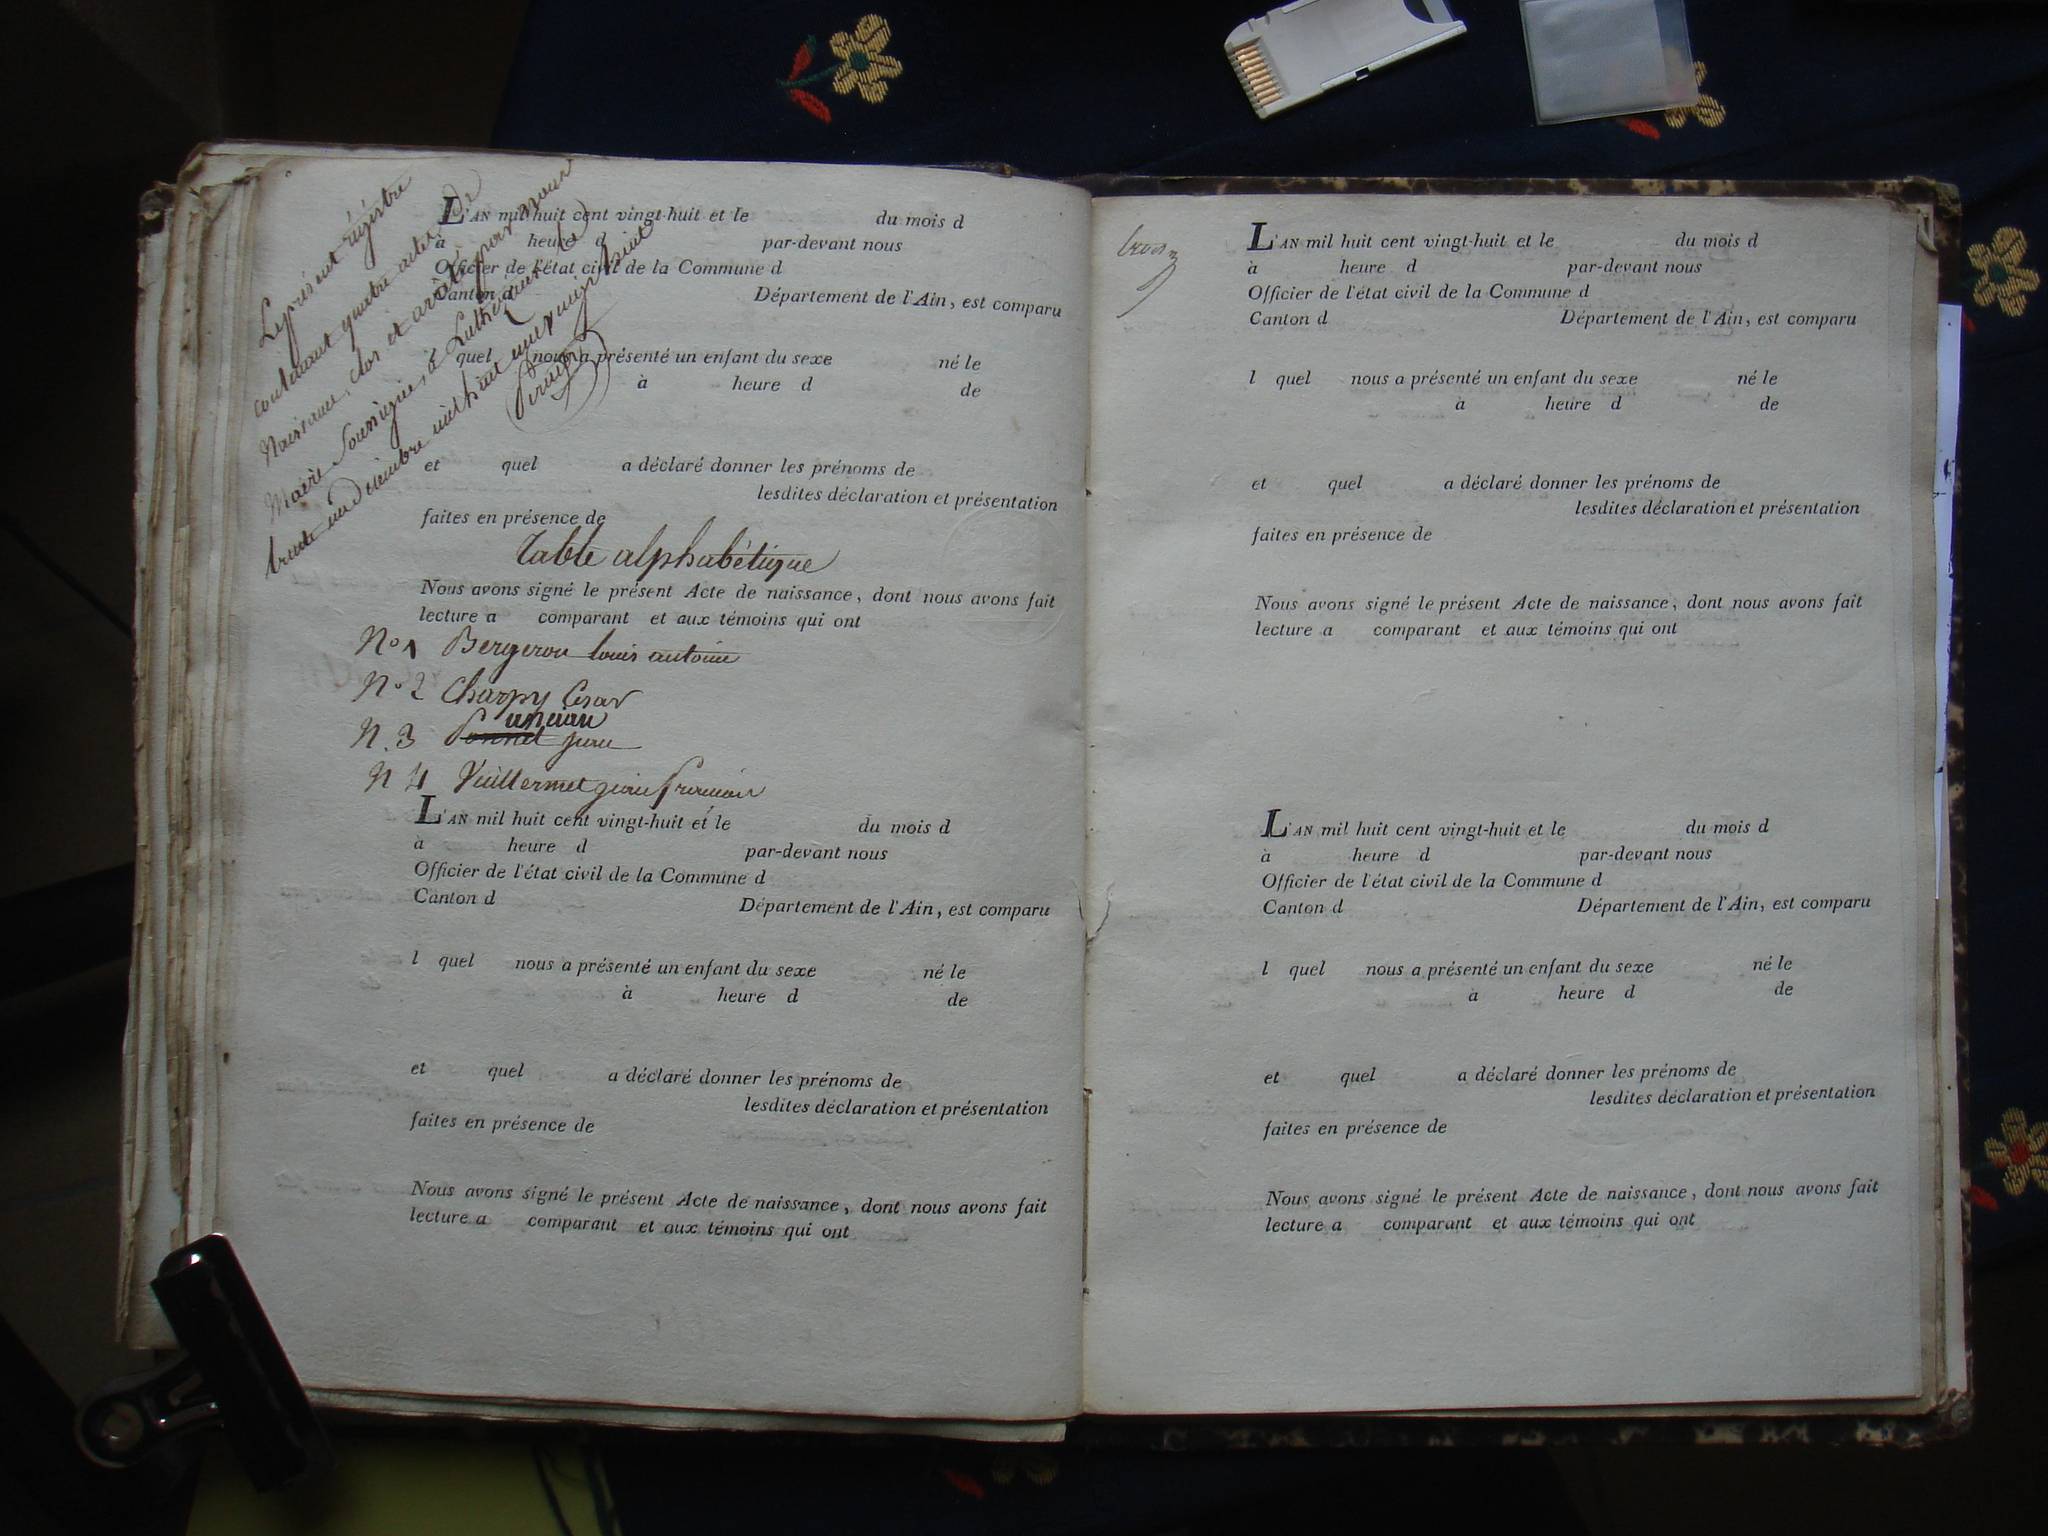 Le présent régistre
contenant quatre actes de
Naissance, clos et arrêté par nous
Maire Soussigné, à Luthézieu le
trente un décembre mil huit cent vingt huit
L'AN mil huit cent vingt-huit et le du mois d
à heure d par-devant nous
Officier de l'état civil de la Commune d
Canton d Département de l'Ain, est comparu
quel nous a présenté un enfant du sexe né le
à heure d de
et quel a déclaré donner les prénoms de
lesdites déclaration et présentation
faites en présence de
Table alphabétique
Nous avons signé le présent Acte de naissance, dont nous avons fait
lecture a comparant et aux témoins qui ont
No 1 Bergeron louis antoine
No 2 Charpy Cesar
N. 3 Ponnet jean
N 4 Vuillermet jean francois
L'AN mil huit cent vingt-huit et le du mois d
à heure d par-devant nous
Officier de l'état civil de la Commune d
Canton d Département de l'Ain, est comparu
l quel nous a présenté un enfant du sexe né le
à heure d de
et quel a déclaré donner les prénoms de
lesdites déclaration et présentation
faites en présence de
Nous avons signé le présent Acte de naissance, dont nous avons fait
lecture a comparant et aux témoins qui ont
trois
L'AN mil huit cent vingt-huit et le du mois d
à heure d par-devant nous
Officier de l'état civil de la Commune d
Canton d Département de l'Ain, est comparu
l quel nous a présenté un enfant du sexe né le
à heure d de
et quel a déclaré donner les prénoms de
lesdites déclaration et présentation
faites en présence de
Nous avons signé le présent Acte de naissance, dont nous avons fait
lecture a comparant et aux témoins qui ont
L'AN mil huit cent vingt-huit et le du mois d
à heure d par-devant nous
Officier de l'état civil de la Commune d
Canton d Département de l'Ain, est comparu
l quel nous a présenté un enfant du sexe né le
à heure d de
et quel a déclaré donner les prénoms de
lesdites déclaration et présentation
faites en présence de
Nous avons signé le présent Acte de naissance, dont nous avons fait
lecture a comparant et aux témoins qui ont